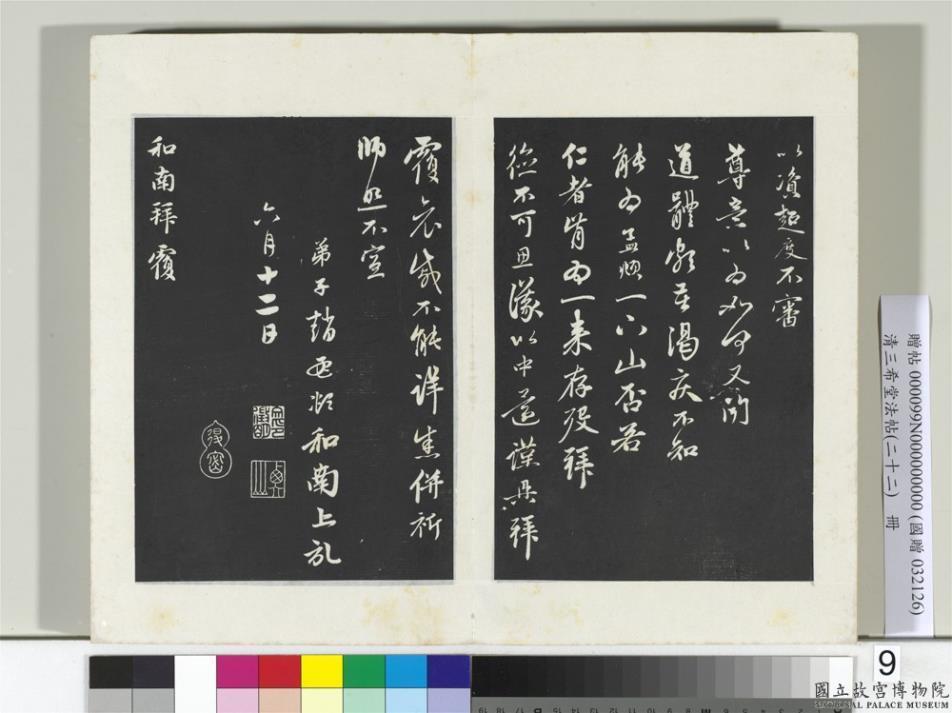 以資超度不審
尊意以為如何又聞
道體頗苦渴疾不知
能為孟頫一下山否若
仁者肯為一來存歿拜
德不可思議以中還謹再拜
覆哀感不能詳悉併祈
師照不宣
弟子趙孟頫和南上記
六月十二日
和南拜覆
贈帖 0000099N000000000 (國贈 032126)
清三希堂法帖(二十二) 冊
9
國立故宮博物院
NATIONAL PALACE MUSEUM